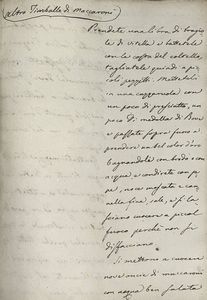 altro Timballo di Maccaroni
Prendete una libra di bragio
le di vitella e battetele
con la costa del coltello,
tagliatele quindi a pic
coli pezzetti. Mettetele
in una cazzarola con
un poco di presciutto, un
poco di medolla di Bove
e passate sopra fuoco a
prendere un bel color d'oro
bagnandole con brodo o con
acqua e condirete con pe
pe, noce moscata e can
nella fina, sale, e si la
sciano cuocere a piccol
fuoco perché non si
disfacciano.
Si mettono a cuocere
nove oncie di maccaroni
con acqua ben salata